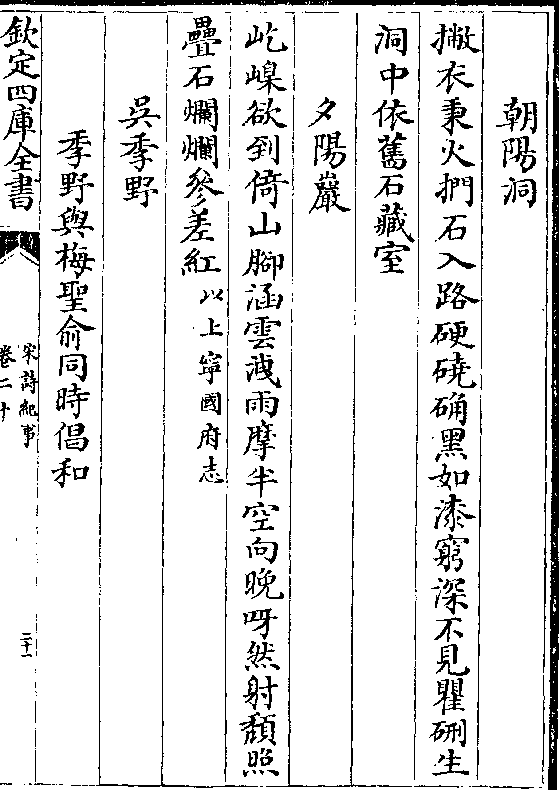 朝陽洞
撇衣秉火捫石入路硬磽确黑如漆窮深不見瞿硎生
洞中依舊石藏室
夕陽巖
屹嵲欲到倚山腳涵雲洩雨摩半空向晚呀然射頽照
疊石爛爛參差紅以上寧國府志
吳季野
季野與梅聖俞同時倡和
欽定四庫全書
宋詩紀事
卷二十
二十一